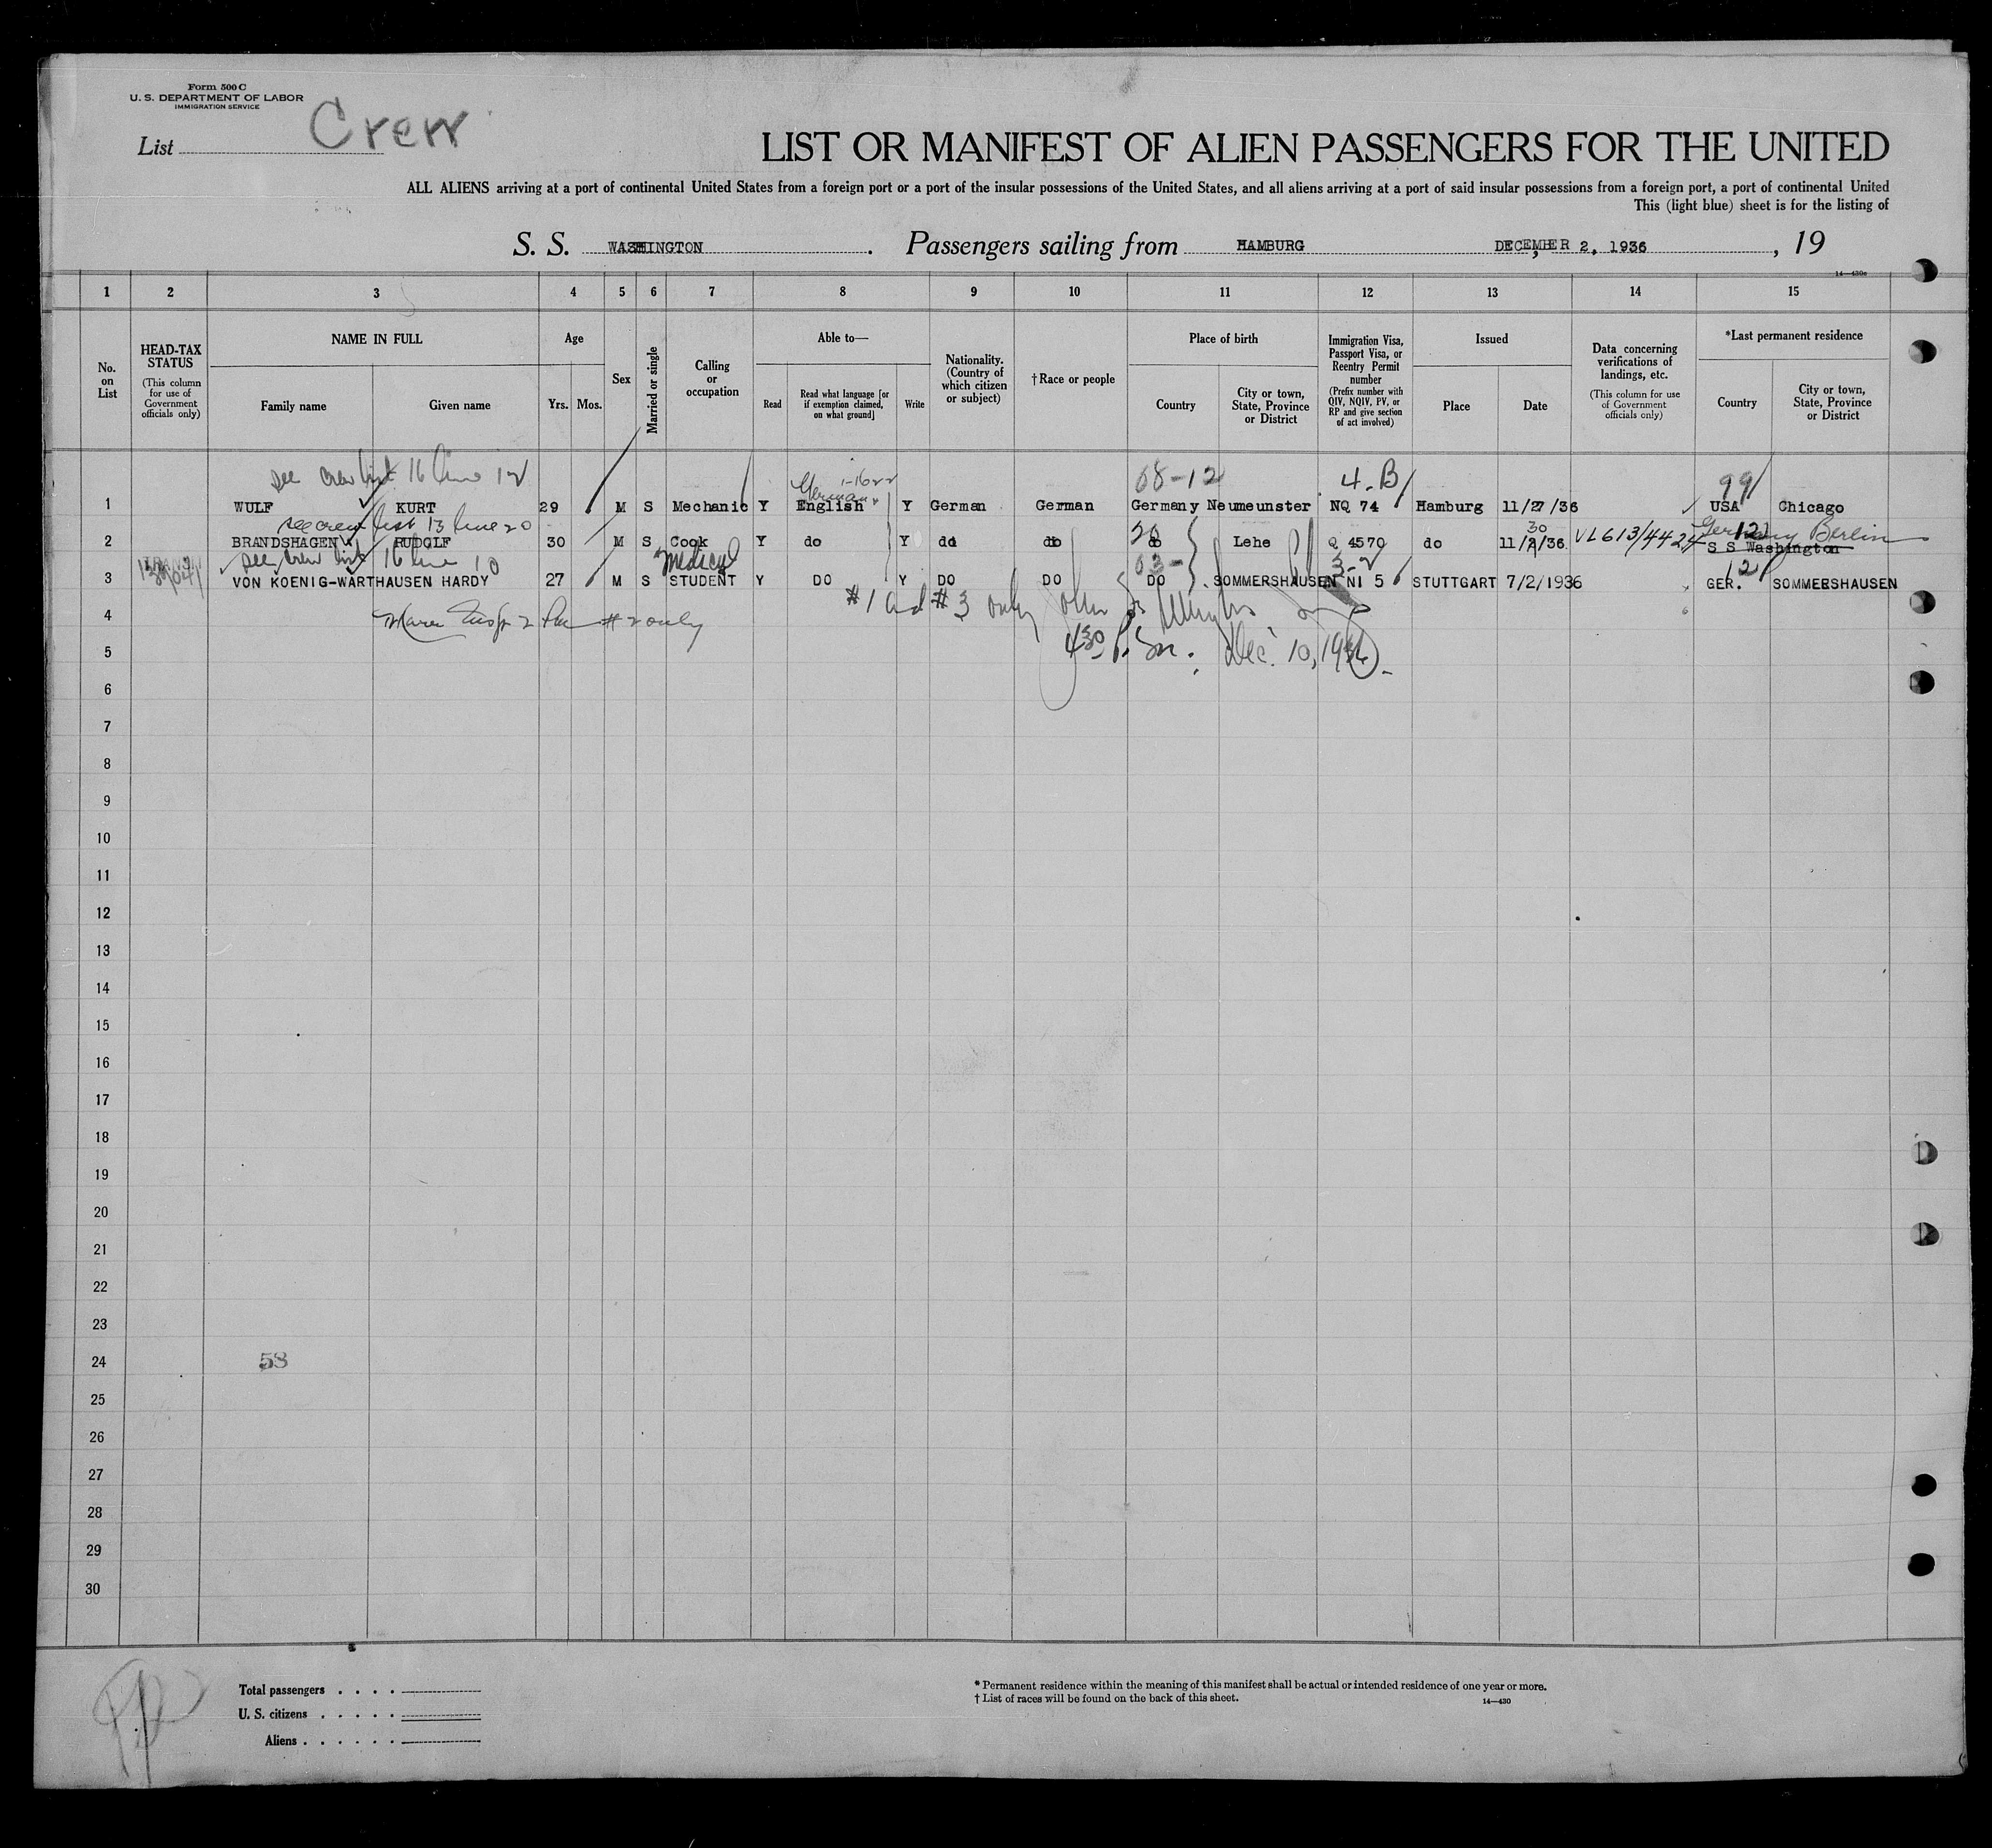 Form 500 C
U. S. DEPARTMENT OF LABOR
IMMIGRATION SERVICE
List Crew
LIST OR MANIFEST OF ALIEN PASSENGERS FOR THE UNITED
ALL ALIENS arriving at a port of continental United States from a foreign port or a port of the insular possessions of the United States, and all aliens arriving at a port of said insular possessions from a foreign port, a port of continental United
This (light blue) sheet is for the listing of
S. S. WASHINGTON. Passengers sailing from HAMBURG DECEMBER 2, 1936, 19
14—430c
1 2 3 4 5 6 7 8 9 10 11 12 13 14 15
No. on List
HEAD-TAX STATUS (This column for use of Government officials only)
NAME IN FULL
Family name
Given name
Age
Yrs.
Mos.
Sex
Married or single
Calling or occupation
Able to—
Read
Read what language [or if exemption claimed, on what ground]
Write
Nationality. (Country of which citizen or subject)
†Race or people
Place of birth
Country
City or town, State, Province or District
Immigration Visa, Passport Visa, or Reentry Permit number (Prefix number with QIV, NQIV, PV, or RP and give section of act involved)
Issued
Place
Date
Data concerning verifications of landings, etc. (This column for use of Government officials only)
*Last permanent residence
Country
City or town, State, Province or District
see crew list 16 line 12 German 1-1622 08-12 4-B 99
1 WULF KURT 29 M S Mechanic Y English Y German German Germany Neumeunster NQ 74 Hamburg 11/27/36 USA Chicago
see crew list 13 line 20 30 Germany Berlin
2 BRANDSHAGEN RUDOLF 30 M S Cook Y do Y do do do Lehe Q 4570 do 11/ /36 VL613/4424 121 S S Washington
see crew list 16 line 10 medical 03- 3-2 121
3 VON KOENIG-WARTHAUSEN HARDY 27 M S STUDENT Y DO Y DO DO DO SOMMERSHAUSEN NI 5 STUTTGART 7/2/1936 GER. SOMMERSHAUSEN
#1 and #3 only
4 #2 only
5 4 30 P. m. Dec. 10, 1936
6
7
8
9
10
11
12
13
14
15
16
17
18
19
20
21
22
23
24 58
25
26
27
28
29
30
Total passengers . . . .
U. S. citizens . . . . .
Aliens . . . . . .
* Permanent residence within the meaning of this manifest shall be actual or intended residence of one year or more.
† List of races will be found on the back of this sheet.
14—430